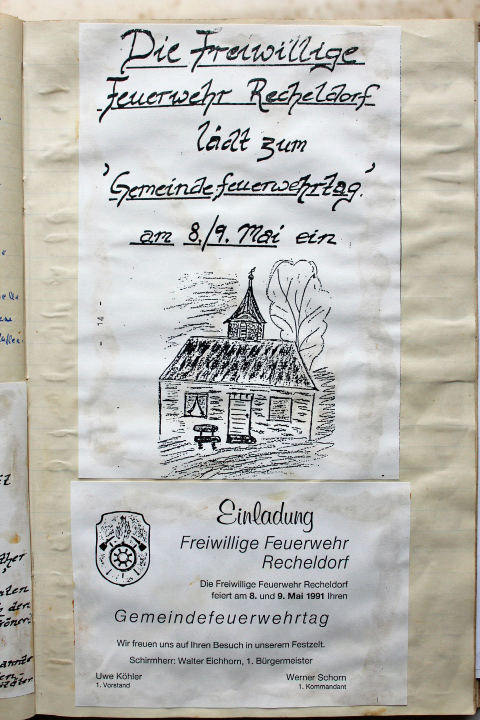 Die Freiwillige
Feuerwehr Recheldorf
lädt zum
'Gemeindefeuerwehrtag'
am 8./9. Mai ein
- 14 -
Einladung
Freiwillige Feuerwehr
Recheldorf
Die Freiwillige Feuerwehr Recheldorf
feiert am 8. und 9. Mai 1991 Ihren
Gemeindefeuerwehrtag
Wir freuen uns auf Ihren Besuch in unserem Festzelt.
Schirmherr: Walter Eichhorn, 1. Bürgermeister
Uwe Köhler
1. Vorstand
Werner Schorn
1. Kommandant